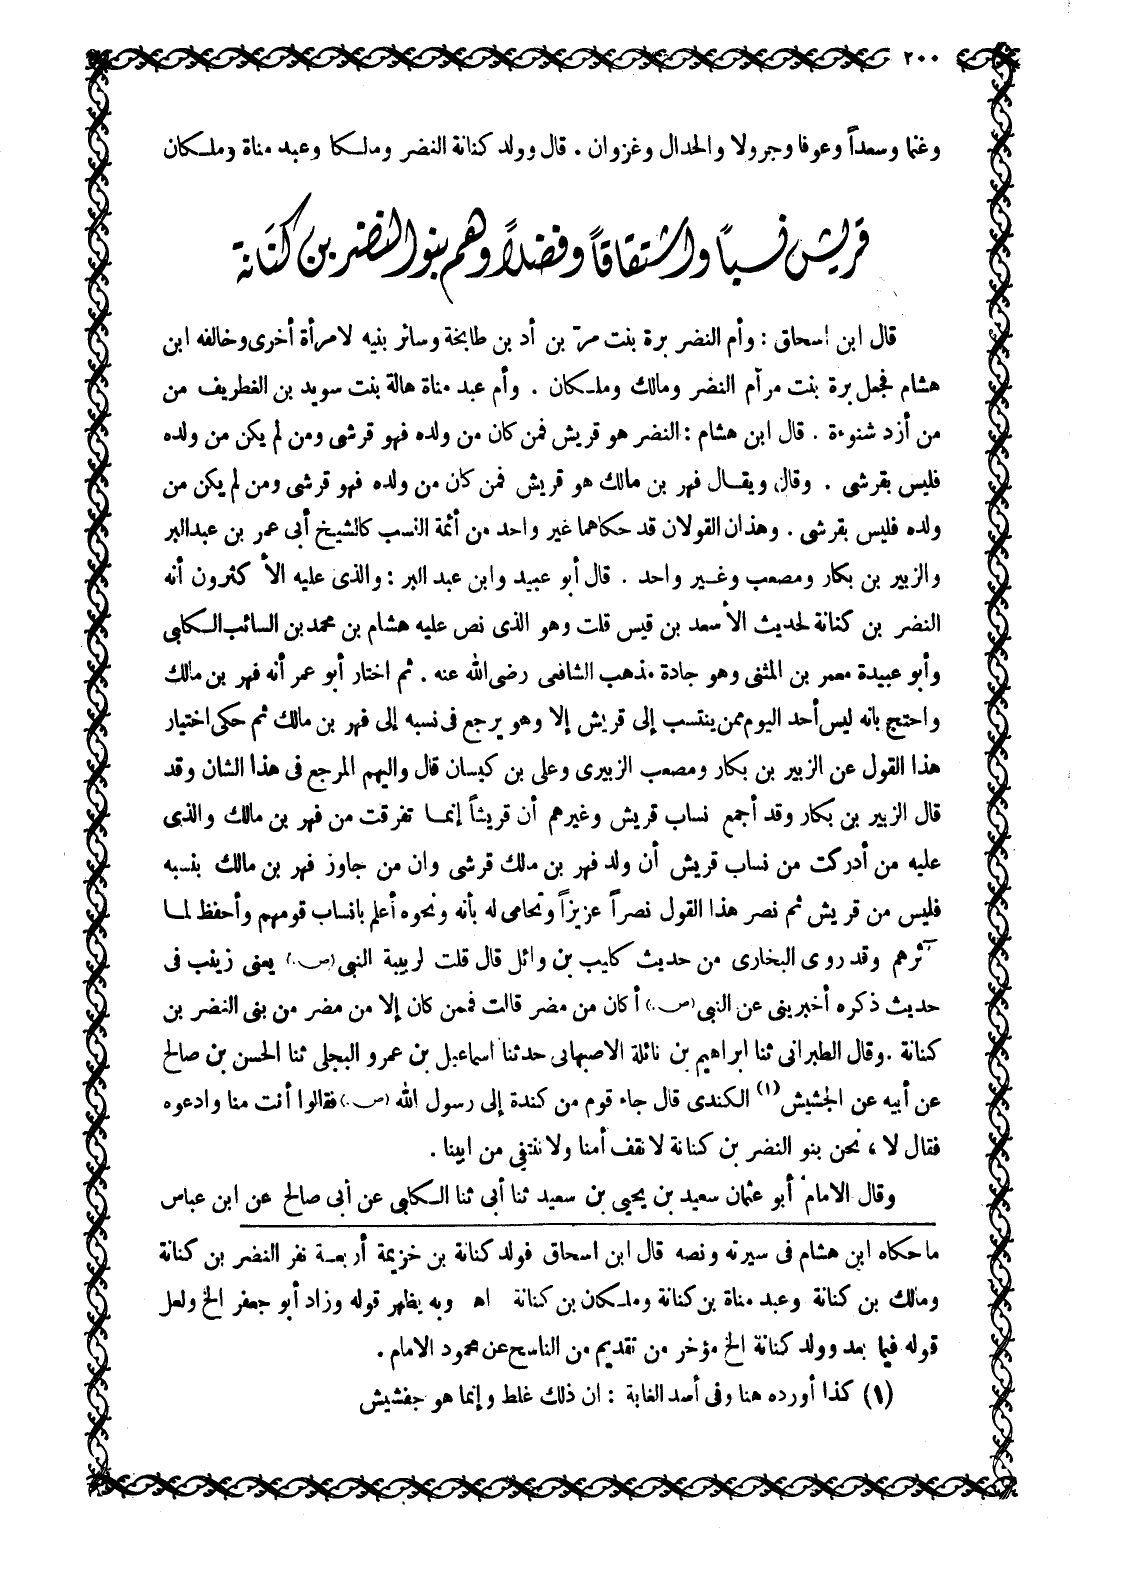 ٢٠٠
وغنما وسعداً وعوفا وجرولا والحدال وغزوان . قال وولد كنانة النضر ومالكا وعبد مناة وملكان
قريش نسباً واشتقاقاً وفضلاً وهم بنو النضر بن كنانة
قال ابن اسحاق : وأم النضر برة بنت مرّ بن أد بن طابخة وسائر بنيه لامرأة أخرى وخالفه ابن
هشام فجعل برة بنت مر أم النضر ومالك وملكان . وأم عبد مناة هالة بنت سويد بن الغطريف من
من أزد شنوءة . قال ابن هشام : النضر هو قريش فمن كان من ولده فهو قرشى ومن لم يكن من ولده
فليس بقرشى . وقال ويقال فهر بن مالك هو قريش فمن كان من ولده فهو قرشى ومن لم يكن من
ولده فليس بقرشى . وهذان القولان قد حكاهما غير واحد من أئمة النسب كالشيخ أبى عمر بن عبدالبر
والزبير بن بكار ومصعب وغير واحد . قال أبو عبيد وابن عبد البر : والذى عليه الأكثرون أنه
النضر بن كنانة لحديث الأسعد بن قيس قلت وهو الذى نص عليه هشام بن محمد بن السائب الكلبى
وأبو عبيدة معمر بن المثنى وهو جادة مذهب الشافعى رضى الله عنه . ثم اختار أبو عمر أنه فهر بن مالك
واحتج بانه ليس أحد اليوم ممن ينتسب إلى قريش إلا وهو يرجع فى نسبه إلى فهر بن مالك ثم حكى اختيار
هذا القول عن الزبير بن بكار ومصعب الزبيرى وعلى بن كيسان قال واليهم المرجع فى هذا الشان وقد
قال الزبير بن بكار وقد أجمع نساب قريش وغيرهم أن قريشاً إنما تفرقت من فهر بن مالك والذى
عليه من أدركت من نساب قريش أن ولد فهر بن مالك قرشى وان من جاوز فهر بن مالك بنسبه
فليس من قريش ثم نصر هذا القول نصراً عزيزاً وتحامى له بأنه ونحوه أعلم بانساب قومهم وأحفظ لما
آثرهم وقد روى البخارى من حديث كليب بن وائل قال قلت لربيبة النبى (ص.) يعنى زينب فى
حديث ذكره أخبرينى عن النبى (ص.) أكان من مضر قالت فممن كان إلا من مضر من بنى النضر بن
كنانة . وقال الطبرانى ثنا ابراهيم بن نائلة الاصبهانى حدثنا اسماعيل بن عمرو البجلى ثنا الحسن بن صالح
عن أبيه عن الجشيش (١) الكندى قال جاء قوم من كندة إلى رسول الله (ص.) فقالوا أنت منا وادعوه
فقال لا ، نحن بنو النضر بن كنانة لا نقف أمنا ولا ننتفى من ابينا .
وقال الامام أبو عثمان سعيد بن يحيى بن سعيد ثنا أبى ثنا الكلبى عن أبى صالح عن ابن عباس
ما حكاه ابن هشام فى سيرته ونصه قال ابن اسحاق فولد كنانة بن خزيمة أربعة نفر النضر بن كنانة
ومالك بن كنانة وعبد مناة بن كنانة وملكان بن كنانة اهـ وبه يظهر قوله وزاد أبو جعفر الخ ولعل
قوله فيما بعد وولد كنانة الخ مؤخر من تقديم من الناسخ عن محمود الامام .
(١) كذا أورده هنا وفى أسد الغابة : ان ذلك غلط وإنما هو جفشيش